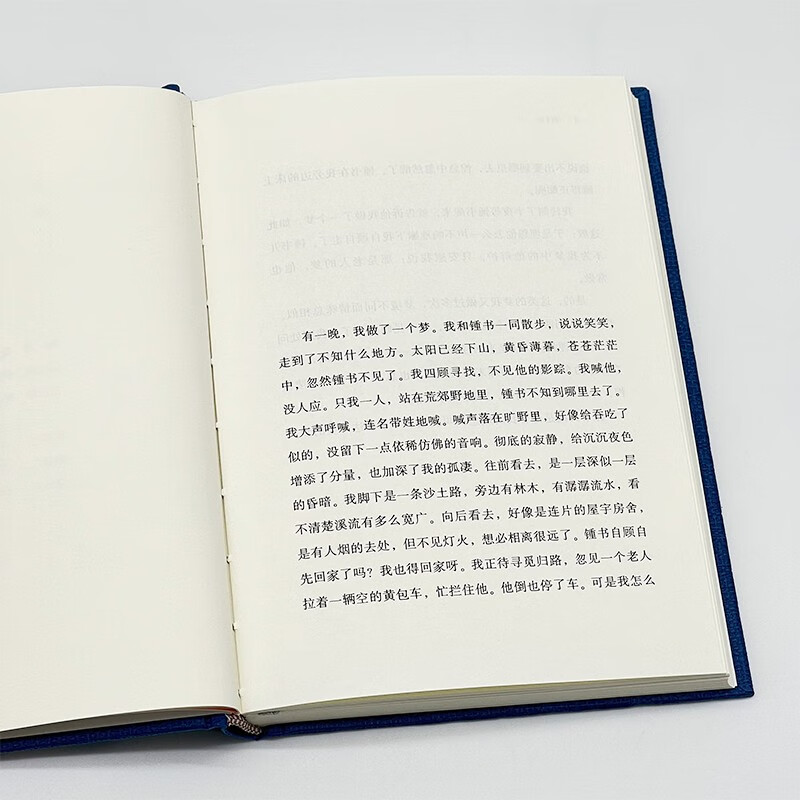 有一晚，我做了一个梦。我和锺书一同散步，说说笑笑，
走到了不知什么地方。太阳已经下山，黄昏薄暮，苍苍茫茫
中，忽然锺书不见了。我四顾寻找，不见他的影踪。我喊他，
没人应。只我一人，站在荒郊野地里，锺书不知到哪里去了。
我大声呼喊，连名带姓地喊。喊声落在旷野里，好像给吞吃了
似的，没留下一点依稀仿佛的音响。彻底的寂静，给沉沉夜色
增添了分量，也加深了我的孤凄。往前看去，是一层深似一层
的昏暗。我脚下是一条沙土路，旁边有林木，有潺潺流水，看
不清楚溪流有多么宽广。向后看去，好像是连片的屋宇房舍，
是有人烟的去处，但不见灯火，想必相离很远了。锺书自顾自
先回家了吗？我也得回家呀。我正待寻觅归路，忽见一个老人
拉着一辆空的黄包车，忙拦住他。他倒也停了车。可是我怎么